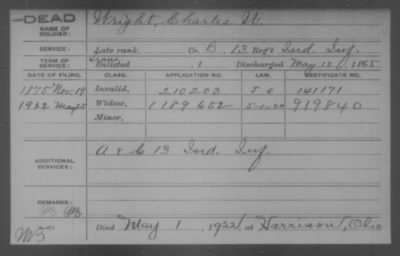 DEAD
NAME OF SOLDIER: Wright, Charles W.
SERVICE: Late rank, Co. B, 13 Reg't Ind. Inf.
TERM OF SERVICE: Enlisted , 1 Discharged May 12, 1865
DATE OF FILING. CLASS. APPLICATION NO. LAW. CERTIFICATE NO.
1875 Nov. 19 Invalid, 210203 141171
1922 May 25 Widow, 1189652 5-1-20 919840
Minor,
ADDITIONAL SERVICES: A & C 13 Ind. Inf.
REMARKS:
Died May 1, 1922, at Harrison, Ohio